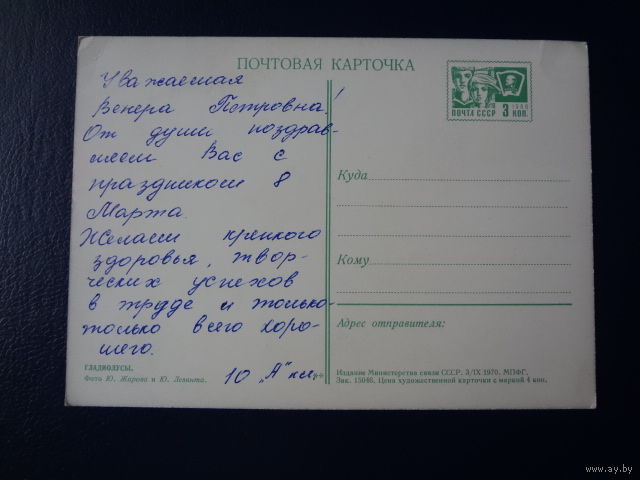 ПОЧТОВАЯ КАРТОЧКА
Уважаемая
Венера Петровна!
От души поздрав-
ляем Вас с
праздником 8
Марта.
Желаем крепкого
здоровья, твор-
ческих успехов
в труде и только-
только всего хоро-
шего.
10 „А" кл.
ГЛАДИОЛУСЫ.
Фото Ю. Жарова и Ю. Левянта.
1966
ПОЧТА СССР 3 КОП.
Куда
Кому
Адрес отправителя:
Издание Министерства связи СССР. 3/IX 1970. МПФГ.
Зак. 15046. Цена художественной карточки с маркой 4 коп.
www.ay.by